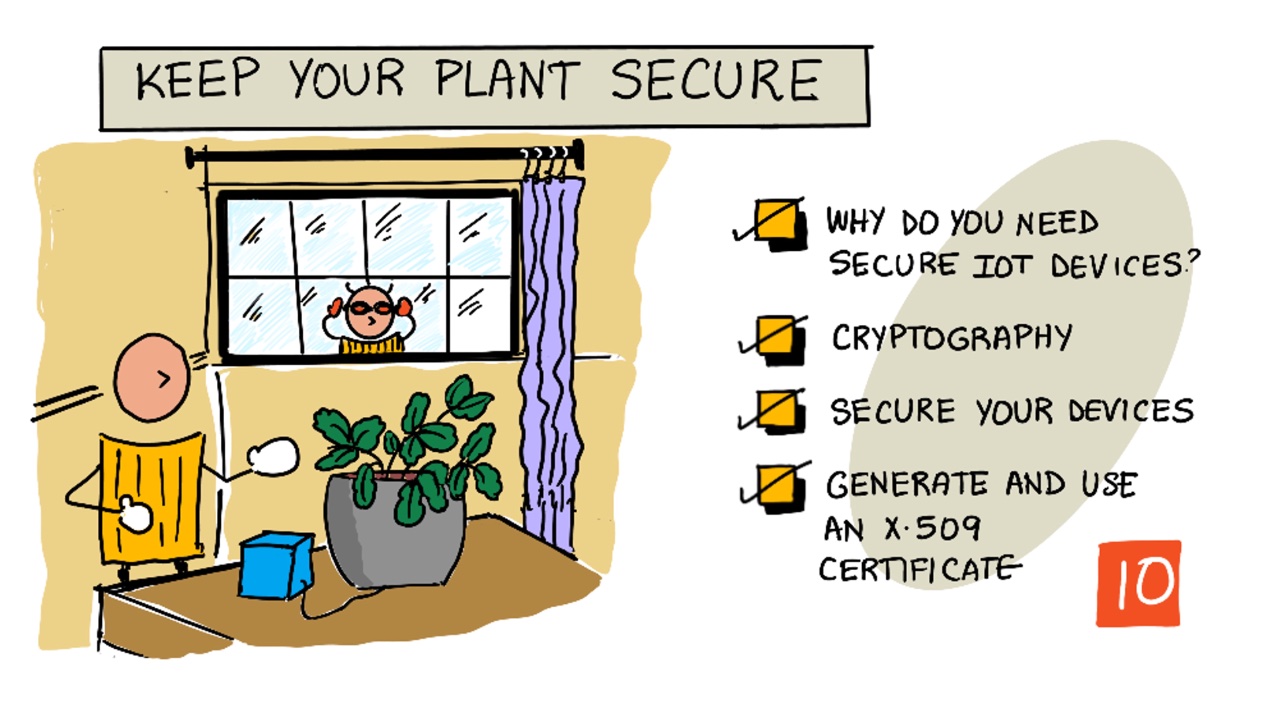 KEEP YOUR PLANT SECURE
WHY DO YOU NEED
SECURE IOT DEVICES?
CRYPTOGRAPHY
SECURE YOUR DEVICES
GENERATE AND USE
AN X.509
CERTIFICATE
10